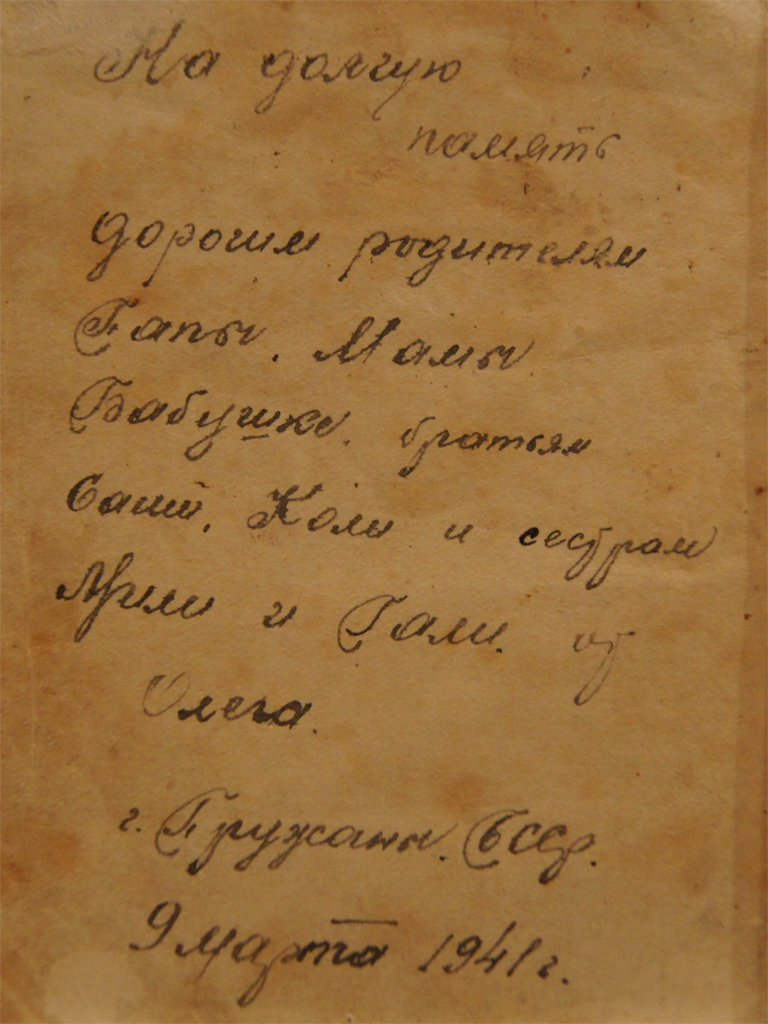 На долгую
память
дорогим родителям
Папы, Мамы
Бабушке, братьям
Саши, Коли и сестрам
и Гали. от
Олега.
г. Пружаны. БССР.
9 марта 1941 г.